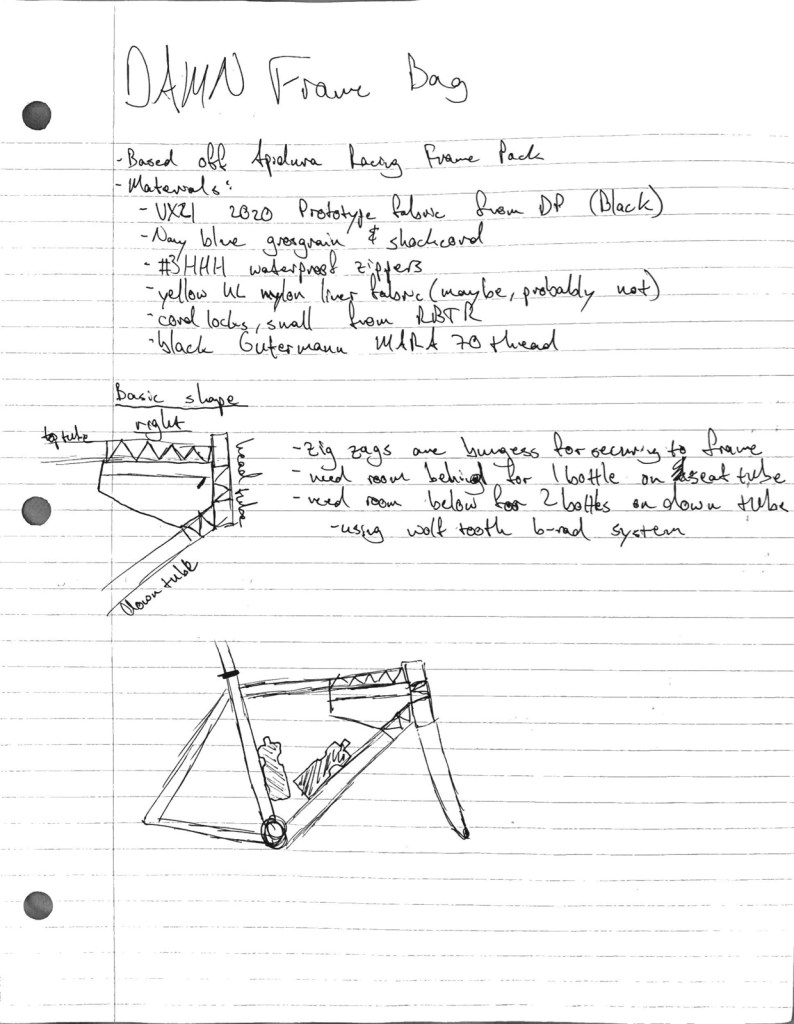 DAMN Frame Bag
- Based off Apidura Racing Frame Pack
- Materials:
- VX21 2020 Prototype fabric from DP (Black)
- Navy blue grosgrain & shockcord
- #3 HHH waterproof zippers
- yellow UL nylon liner fabric (maybe, probably not)
- cord locks, small from RBTR
- black Gutermann MARA 70 thread
Basic shape
right
top tube
head tube
down tube
- zig zags are bungess for securing to frame
- need room behind for 1 bottle on seat tube
- need room below for 2 bottles on down tube
- using wolf tooth b-rad system